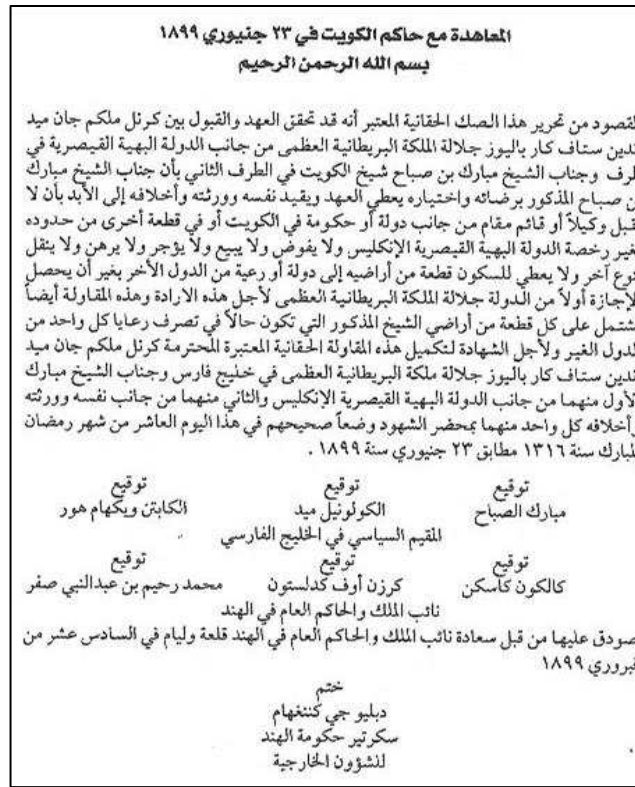 المعاهدة مع حاكم الكويت في ٢٣ جنيوري ١٨٩٩
بسم الله الرحمن الرحيم
لقصود من تحرير هذا الصك الحقانية المعتبر أنه قد تحقق العهد والقبول بين كرنل ملكم جان ميد
ندين ستاف كار باليوز جلالة الملكة البريطانية العظمى من جانب الدولة البهية القيصرية في
طرف وجناب الشيخ مبارك بن صباح شيخ الكويت في الطرف الثاني بأن جناب الشيخ مبارك
ن صباح المذكور برضائه واختياره يعطي العهد ويقيد نفسه وورثته وأخلافه إلى الأبد بأن لا
قبل وكيلاً أو قائم مقام من جانب دولة أو حكومة في الكويت أو في قطعة أخرى من حدوده
غير رخصة الدولة البهية القيصرية الإنكليس ولا يفوض ولا يبيع ولا يؤجر ولا يرهن ولا ينقل
نوع آخر ولا يعطي للسكون قطعة من أراضيه إلى دولة أو رعية من الدول الأخر بغير أن يحصل
لإجازة أولاً من الدولة جلالة الملكة البريطانية العظمى لأجل هذه الارادة وهذه المقاولة أيضاً
شتمل على كل قطعة من أراضي الشيخ المذكور التي تكون حالاً في تصرف رعايا كل واحد من
لدول الغير ولأجل الشهادة لتكميل هذه المقاولة الحقانية المعتبرة المحترمة كرنل ملكم جان ميد
ندين ستاف كار باليوز جلالة ملكة البريطانية العظمى في خليج فارس وجناب الشيخ مبارك
لأول منهما من جانب الدولة البهية القيصرية الإنكليس والثاني منهما من جانب نفسه وورثته
أخلافه كل واحد منهما بمحضر الشهود وضعاً صحيحهم في هذا اليوم العاشر من شهر رمضان
لمبارك سنة ١٣١٦ مطابق ٢٣ جنيوري سنة ١٨٩٩ .
توقيع توقيع توقيع
مبارك الصباح الكولونيل ميد الكابتن ويكهام هور
المقيم السياسي في الخليج الفارسي
توقيع توقيع توقيع
كالكون كاسكن كرزن أوف كدلستون محمد رحيم بن عبدالنبي صفر
نائب الملك والحاكم العام في الهند
صودق عليها من قبل سعادة نائب الملك والحاكم العام في الهند قلعة وليام في السادس عشر من
فبروري ١٨٩٩
ختم
دبليو جي كننغهام
سكرتير حكومة الهند
للشؤون الخارجية